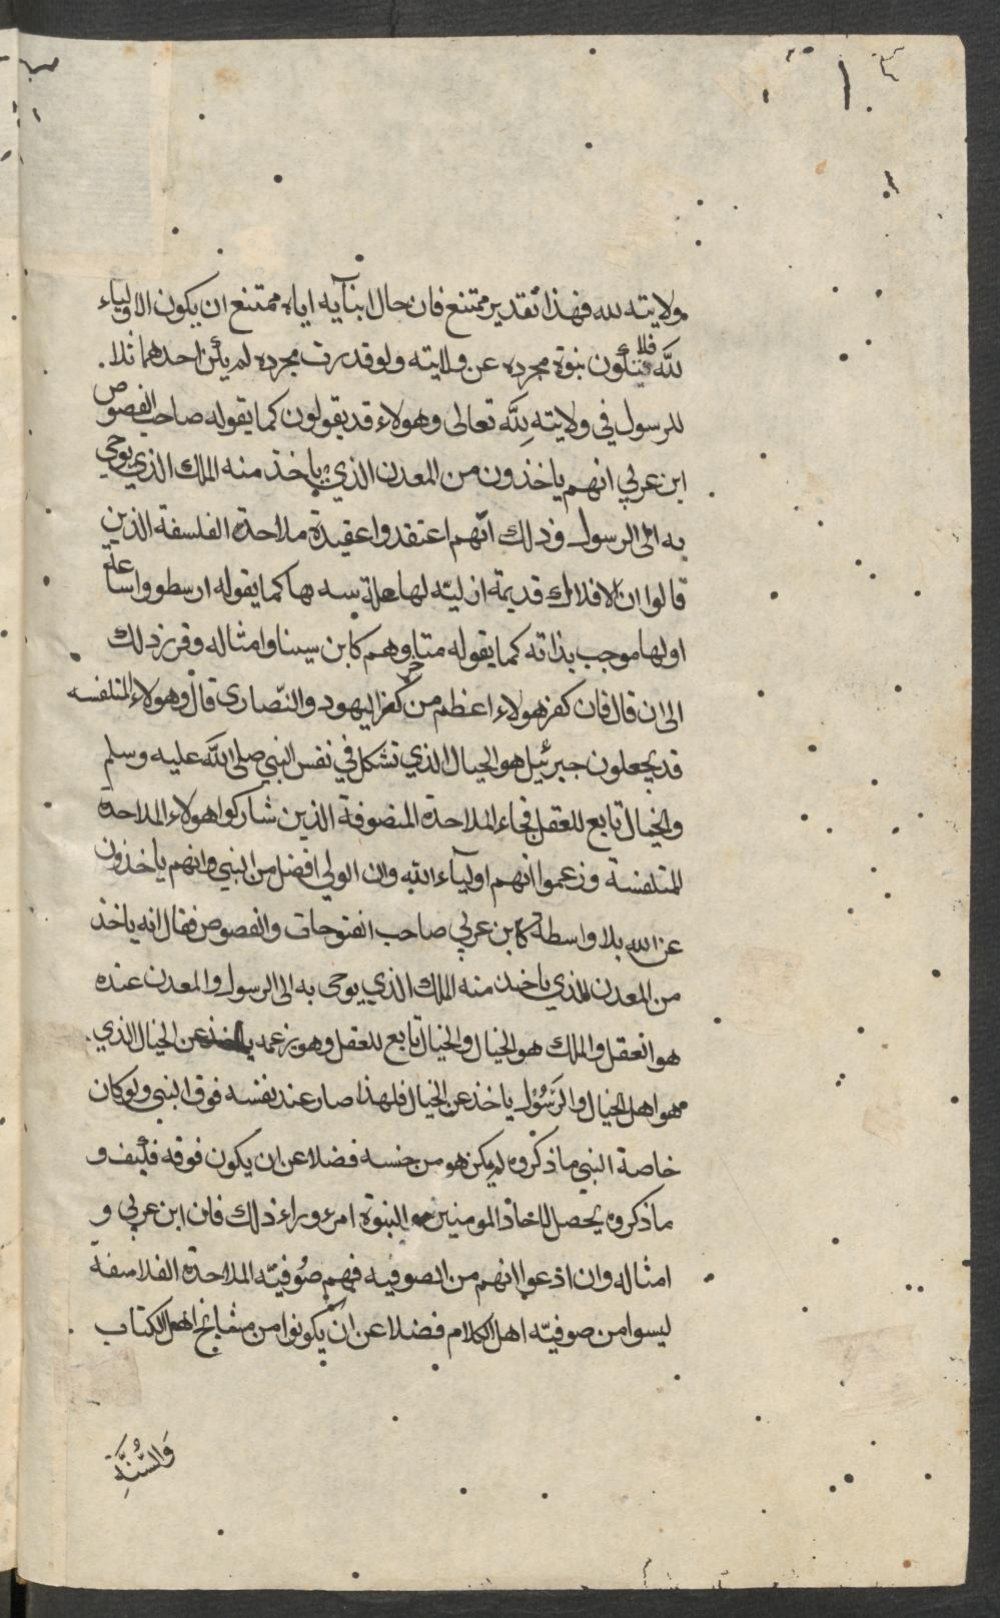 وولايته لله فهذا تقدير ممتنع فان حال ابنآيه اياه ممتنع ان يكون الا وليا
لله فلا تكون نبوة مجرده عن ولايته ولو قدرت مجرده لم يكن احدهما ثلا
للرسول في ولايته لله تعالى وهولاء قد يقولون كما يقوله صاحب الفصوص
ابن عربي انهم ياخذون من المعدن الذي ياخذ منه الملك الذي يوحي
به الى الرسول وذلك انهم اعتقدوا عقيدة ملاحدة الفلسفة الذين
قالوا ان الافلاك قديمة ازليّه لها علة كما يقوله ارسطو واتباعه
اولها موجب بذاته كما يقوله متاخروهم كابن سينا وامثاله وقرر ذلك
الى ان قال فان كفر هولاء اعظم من كفر اليهود والنّصارى قال وهولاء المتلفسه
قد يجعلون جبرئيل هو الخيال الذي تشكل في نفس النبي صلى الله عليه وسلم
والخيال تابع للعقل فجاء الملاحدة المتصوفة الذين شاركوا هولاء الملاحدة
المتلفسة وزعموا انهم اوليآء الله وان الولي افضل من النبي وانهم ياخذون
عن الله بلا واسطة كابن عربي صاحب الفتوحات والفصوص فقال انه ياخذ
من المعدن الذي ياخذ منه الملك الذي يوحى به الى الرسول والمعدن عنده
هو العقل والملك هو الخيال والخيال تابع للعقل وهو بزعمه ياخذ عن الخيال الذي
هو اهل الخيال والرَّسُوْل ياخذ عن الخيال فلهذا صار عند نفسه فوق النبي ولو كان
خاصة النبي ما ذكروه لم يكن هو من جنسه فضلا عن ان يكون فوقه فكيف و
ما ذكروه يحصل لاخاذ المومنين والنبوة امر وراء ذلك فان ابن عربي و
امثاله وان ادعوا انهم من الصوفيه فهم صُوفيّه الملاحدة الفلاسفة
ليسوا من صوفيّه اهل الكلام فضلا عن ان يكونوا من مشايخ اهل الكتاب
وَالسُّنَّةِ